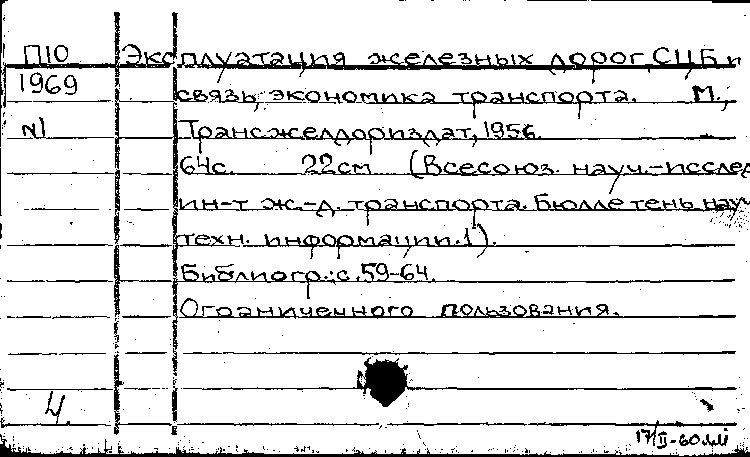 П10 Эксплуатация железных дорог, СЦБ и
1969 связь, экономика транспорта. М.,
N1 Трансжелдориздат, 1956.
64с. 22см (Всесоюз. науч.-исслед
ин-т ж.-д. транспорта. Бюллетень науч
техн. информации.1).
Библиогр.: с.59-64.
Ограниченного пользования.
4.
17/II-60